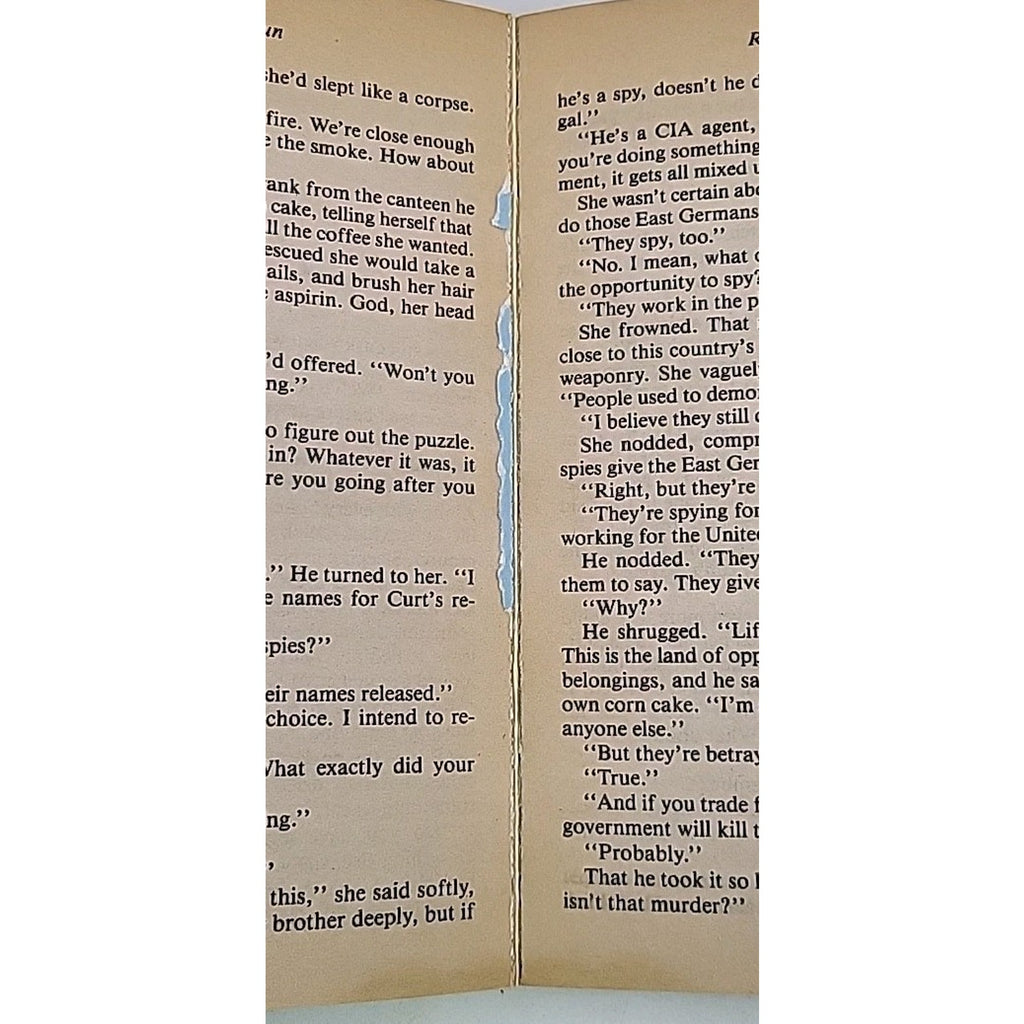 un
she'd slept like a corpse.
fire. We're close enough
the smoke. How about
ank from the canteen he
cake, telling herself that
ll the coffee she wanted.
escued she would take a
ails, and brush her hair
aspirin. God, her head
'd offered. “Won't you
ng.”
o figure out the puzzle.
in? Whatever it was, it
re you going after you
.” He turned to her. “I
e names for Curt's re-
spies?”
eir names released.”
choice. I intend to re-
What exactly did your
ng.”
,
this,” she said softly,
brother deeply, but if
R
he's a spy, doesn't he d
gal.”
“He's a CIA agent,
you're doing something
ment, it gets all mixed u
She wasn't certain abo
do those East Germans
“They spy, too.”
“No. I mean, what o
the opportunity to spy?
“They work in the p
She frowned. That
close to this country's
weaponry. She vaguel
“People used to demo
“I believe they still d
She nodded, compr
spies give the East Ger
“Right, but they're
“They're spying for
working for the United
He nodded. “They
them to say. They give
“Why?”
He shrugged. “Lif
This is the land of opp
belongings, and he sa
own corn cake. “I'm
anyone else.”
“But they're betray
“True.”
“And if you trade f
government will kill t
“Probably.”
That he took it so l
isn't that murder?”